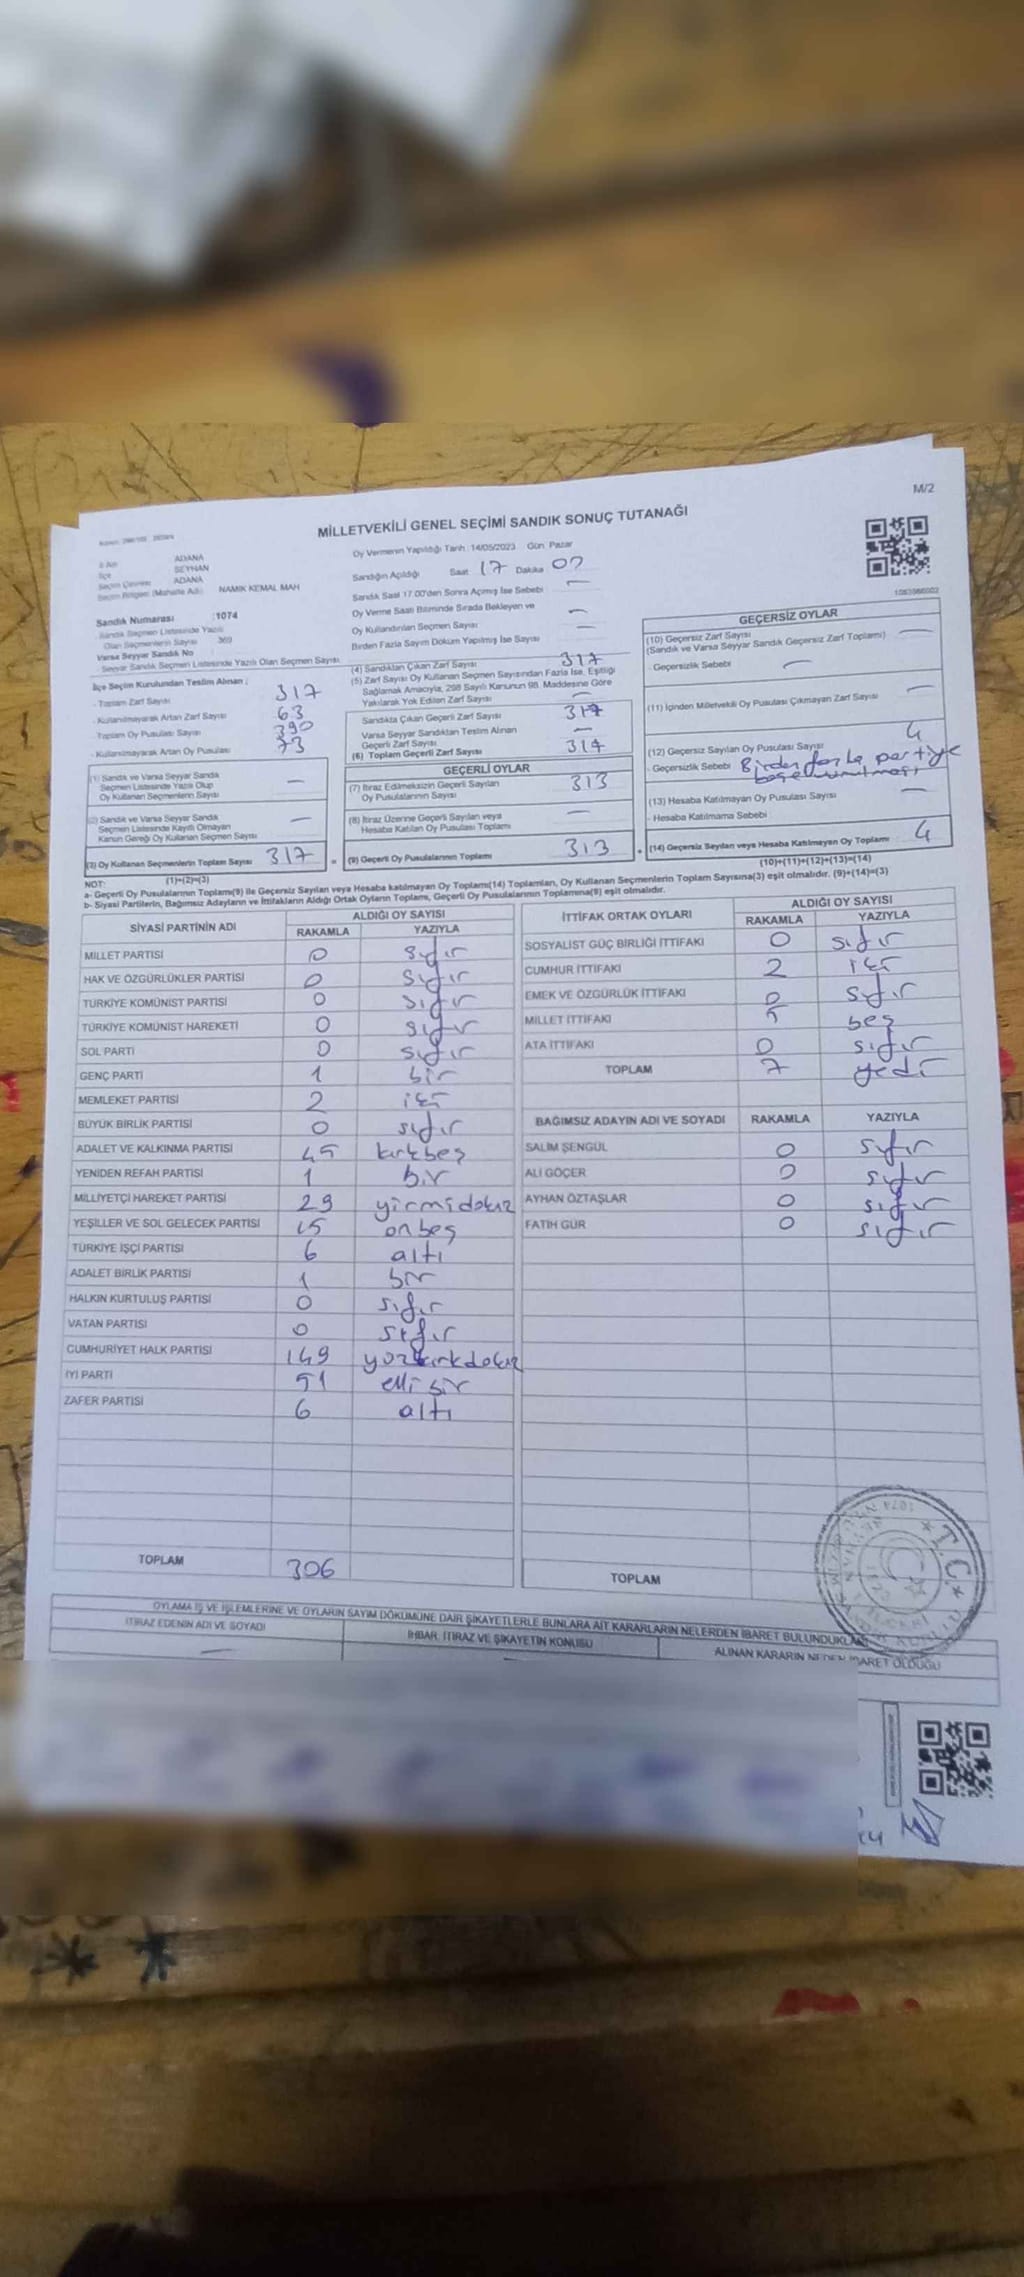 M/2
MİLLETVEKİLİ GENEL SEÇİMİ SANDIK SONUÇ TUTANAĞI
İl Adı ADANA
İlçe SEYHAN
Seçim Çevresi ADANA
Seçim Bölgesi (Mahalle Adı) NAMIK KEMAL MAH
Sandık Numarası :1074
Sandık Seçmen Listesinde Yazılı
Olan Seçmenlerin Sayısı 369
Varsa Seyyar Sandık No
Seyyar Sandık Seçmen Listesinde Yazılı Olan Seçmen Sayısı
İlçe Seçim Kurulundan Teslim Alınan ;
- Toplam Zarf Sayısı 317
- Kullanılmayarak Artan Zarf Sayısı 63
- Toplam Oy Pusulası Sayısı 390
- Kullanılmayarak Artan Oy Pusulası 73
(1) Sandık ve Varsa Seyyar Sandık
Seçmen Listesinde Yazılı Olup
Oy Kullanan Seçmenlerin Sayısı —
(2) Sandık ve Varsa Seyyar Sandık
Seçmen Listesinde Kayıtlı Olmayan
Kanun Gereği Oy Kullanan Seçmen Sayısı —
(3) Oy Kullanan Seçmenlerin Toplam Sayısı 317
(1)+(2)=(3)
Oy Vermenin Yapıldığı Tarih :14/05/2023 Gün: Pazar
Sandığın Açıldığı Saat 17 Dakika 07
Sandık Saat 17.00'den Sonra Açımış İse Sebebi —
Oy Verme Saati Bitiminde Sırada Bekleyen ve
Oy Kullandırılan Seçmen Sayısı —
Birden Fazla Sayım Döküm Yapılmış İse Sayısı —
(4) Sandıktan Çıkan Zarf Sayısı 317
(5) Zarf Sayısı Oy Kullanan Seçmen Sayısından Fazla İse, Eşitliği
Sağlamak Amacıyla, 298 Sayılı Kanunun 98. Maddesine Göre
Yakılarak Yok Edilen Zarf Sayısı —
Sandıkta Çıkan Geçerli Zarf Sayısı 317
Varsa Seyyar Sandıktan Teslim Alınan
Geçerli Zarf Sayısı —
(6) Toplam Geçerli Zarf Sayısı 317
GEÇERLİ OYLAR
(7) İtiraz Edilmeksizin Geçerli Sayılan
Oy Pusulalarının Sayısı 313
(8) İtiraz Üzerine Geçerli Sayılan veya
Hesaba Katılan Oy Pusulası Toplamı —
(9) Geçerli Oy Pusulalarının Toplamı 313
GEÇERSİZ OYLAR
(10) Geçersiz Zarf Sayısı
(Sandık ve Varsa Seyyar Sandık Geçersiz Zarf Toplamı) —
- Geçersizlik Sebebi —
(11) İçinden Milletvekili Oy Pusulası Çıkmayan Zarf Sayısı —
(12) Geçersiz Sayılan Oy Pusulası Sayısı 4
- Geçersizlik Sebebi Birden fazla partiye
(13) Hesaba Katılmayan Oy Pusulası Sayısı —
- Hesaba Katılmama Sebebi
(14) Geçersiz Sayılan veya Hesaba Katılmayan Oy Toplamı 4
(10)+(11)+(12)+(13)=(14)
NOT:
a- Geçerli Oy Pusulalarının Toplamı(9) ile Geçersiz Sayılan veya Hesaba katılmayan Oy Toplamı(14) Toplamları, Oy Kullanan Seçmenlerin Toplam Sayısına(3) eşit olmalıdır. (9)+(14)=(3)
b- Siyasi Partilerin, Bağımsız Adayların ve İttifakların Aldığı Ortak Oyların Toplamı, Geçerli Oy Pusulalarının Toplamına(9) eşit olmalıdır.
SİYASİ PARTİNİN ADI ALDIĞI OY SAYISI
RAKAMLA YAZIYLA
MİLLET PARTİSİ 0 sıfır
HAK VE ÖZGÜRLÜKLER PARTİSİ 0 sıfır
TÜRKİYE KOMÜNİST PARTİSİ 0 sıfır
TÜRKİYE KOMÜNİST HAREKETİ 0 sıfır
SOL PARTİ 0 sıfır
GENÇ PARTİ 1 bir
MEMLEKET PARTİSİ 2 iki
BÜYÜK BİRLİK PARTİSİ 0 sıfır
ADALET VE KALKINMA PARTİSİ 45 kırkbeş
YENİDEN REFAH PARTİSİ 1 bir
MİLLİYETÇİ HAREKET PARTİSİ 29 yirmidokuz
YEŞİLLER VE SOL GELECEK PARTİSİ 15 onbeş
TÜRKİYE İŞÇİ PARTİSİ 6 altı
ADALET BİRLİK PARTİSİ 1 bir
HALKIN KURTULUŞ PARTİSİ 0 sıfır
VATAN PARTİSİ 0 sıfır
CUMHURİYET HALK PARTİSİ 149 yüzkırkdokuz
İYİ PARTİ 51 elli bir
ZAFER PARTİSİ 6 altı
TOPLAM 306
İTTİFAK ORTAK OYLARI ALDIĞI OY SAYISI
RAKAMLA YAZIYLA
SOSYALİST GÜÇ BİRLİĞİ İTTİFAKI 0 sıfır
CUMHUR İTTİFAKI 2 iki
EMEK VE ÖZGÜRLÜK İTTİFAKI 0 sıfır
MİLLET İTTİFAKI 5 beş
ATA İTTİFAKI 0 sıfır
TOPLAM 7 yedi
BAĞIMSIZ ADAYIN ADI VE SOYADI RAKAMLA YAZIYLA
SALİM ŞENGÜL 0 sıfır
ALİ GÖÇER 0 sıfır
AYHAN ÖZTAŞLAR 0 sıfır
FATİH GÜR 0 sıfır
TOPLAM
T.C.
OYLAMA İŞ VE İŞLEMLERİNE VE OYLARIN SAYIM DÖKÜMÜNE DAİR ŞİKAYETLERLE BUNLARA AİT KARARLARIN NELERDEN İBARET BULUNDUKLA
İTİRAZ EDENİN ADI VE SOYADI
İHBAR, İTİRAZ VE ŞİKAYETİN KONUSU
ALINAN KARARIN NEDEN İBARET OLDUĞU